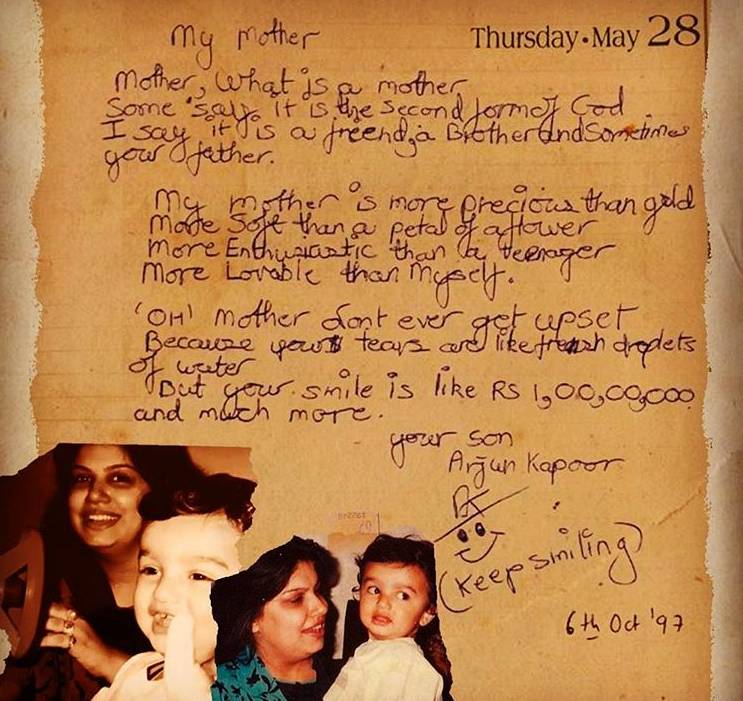 My Mother
Thursday • May 28
Mother, What is a mother
Some 'say. It is the second form of God.
I say it is a freend, a Brother and Sometimes
your father.
My mother is more precious than gold
More Soft than a petal of a flower
More Enthusiastic than a teenager
More Lovable than Myself.
'OH' Mother dont ever get upset
Because your tears are like fresh droplets
of water
But your smile is like RS 1,00,00,000
and much more.
your son
Arjun Kapoor
(Keep smiling)
6th Oct '97